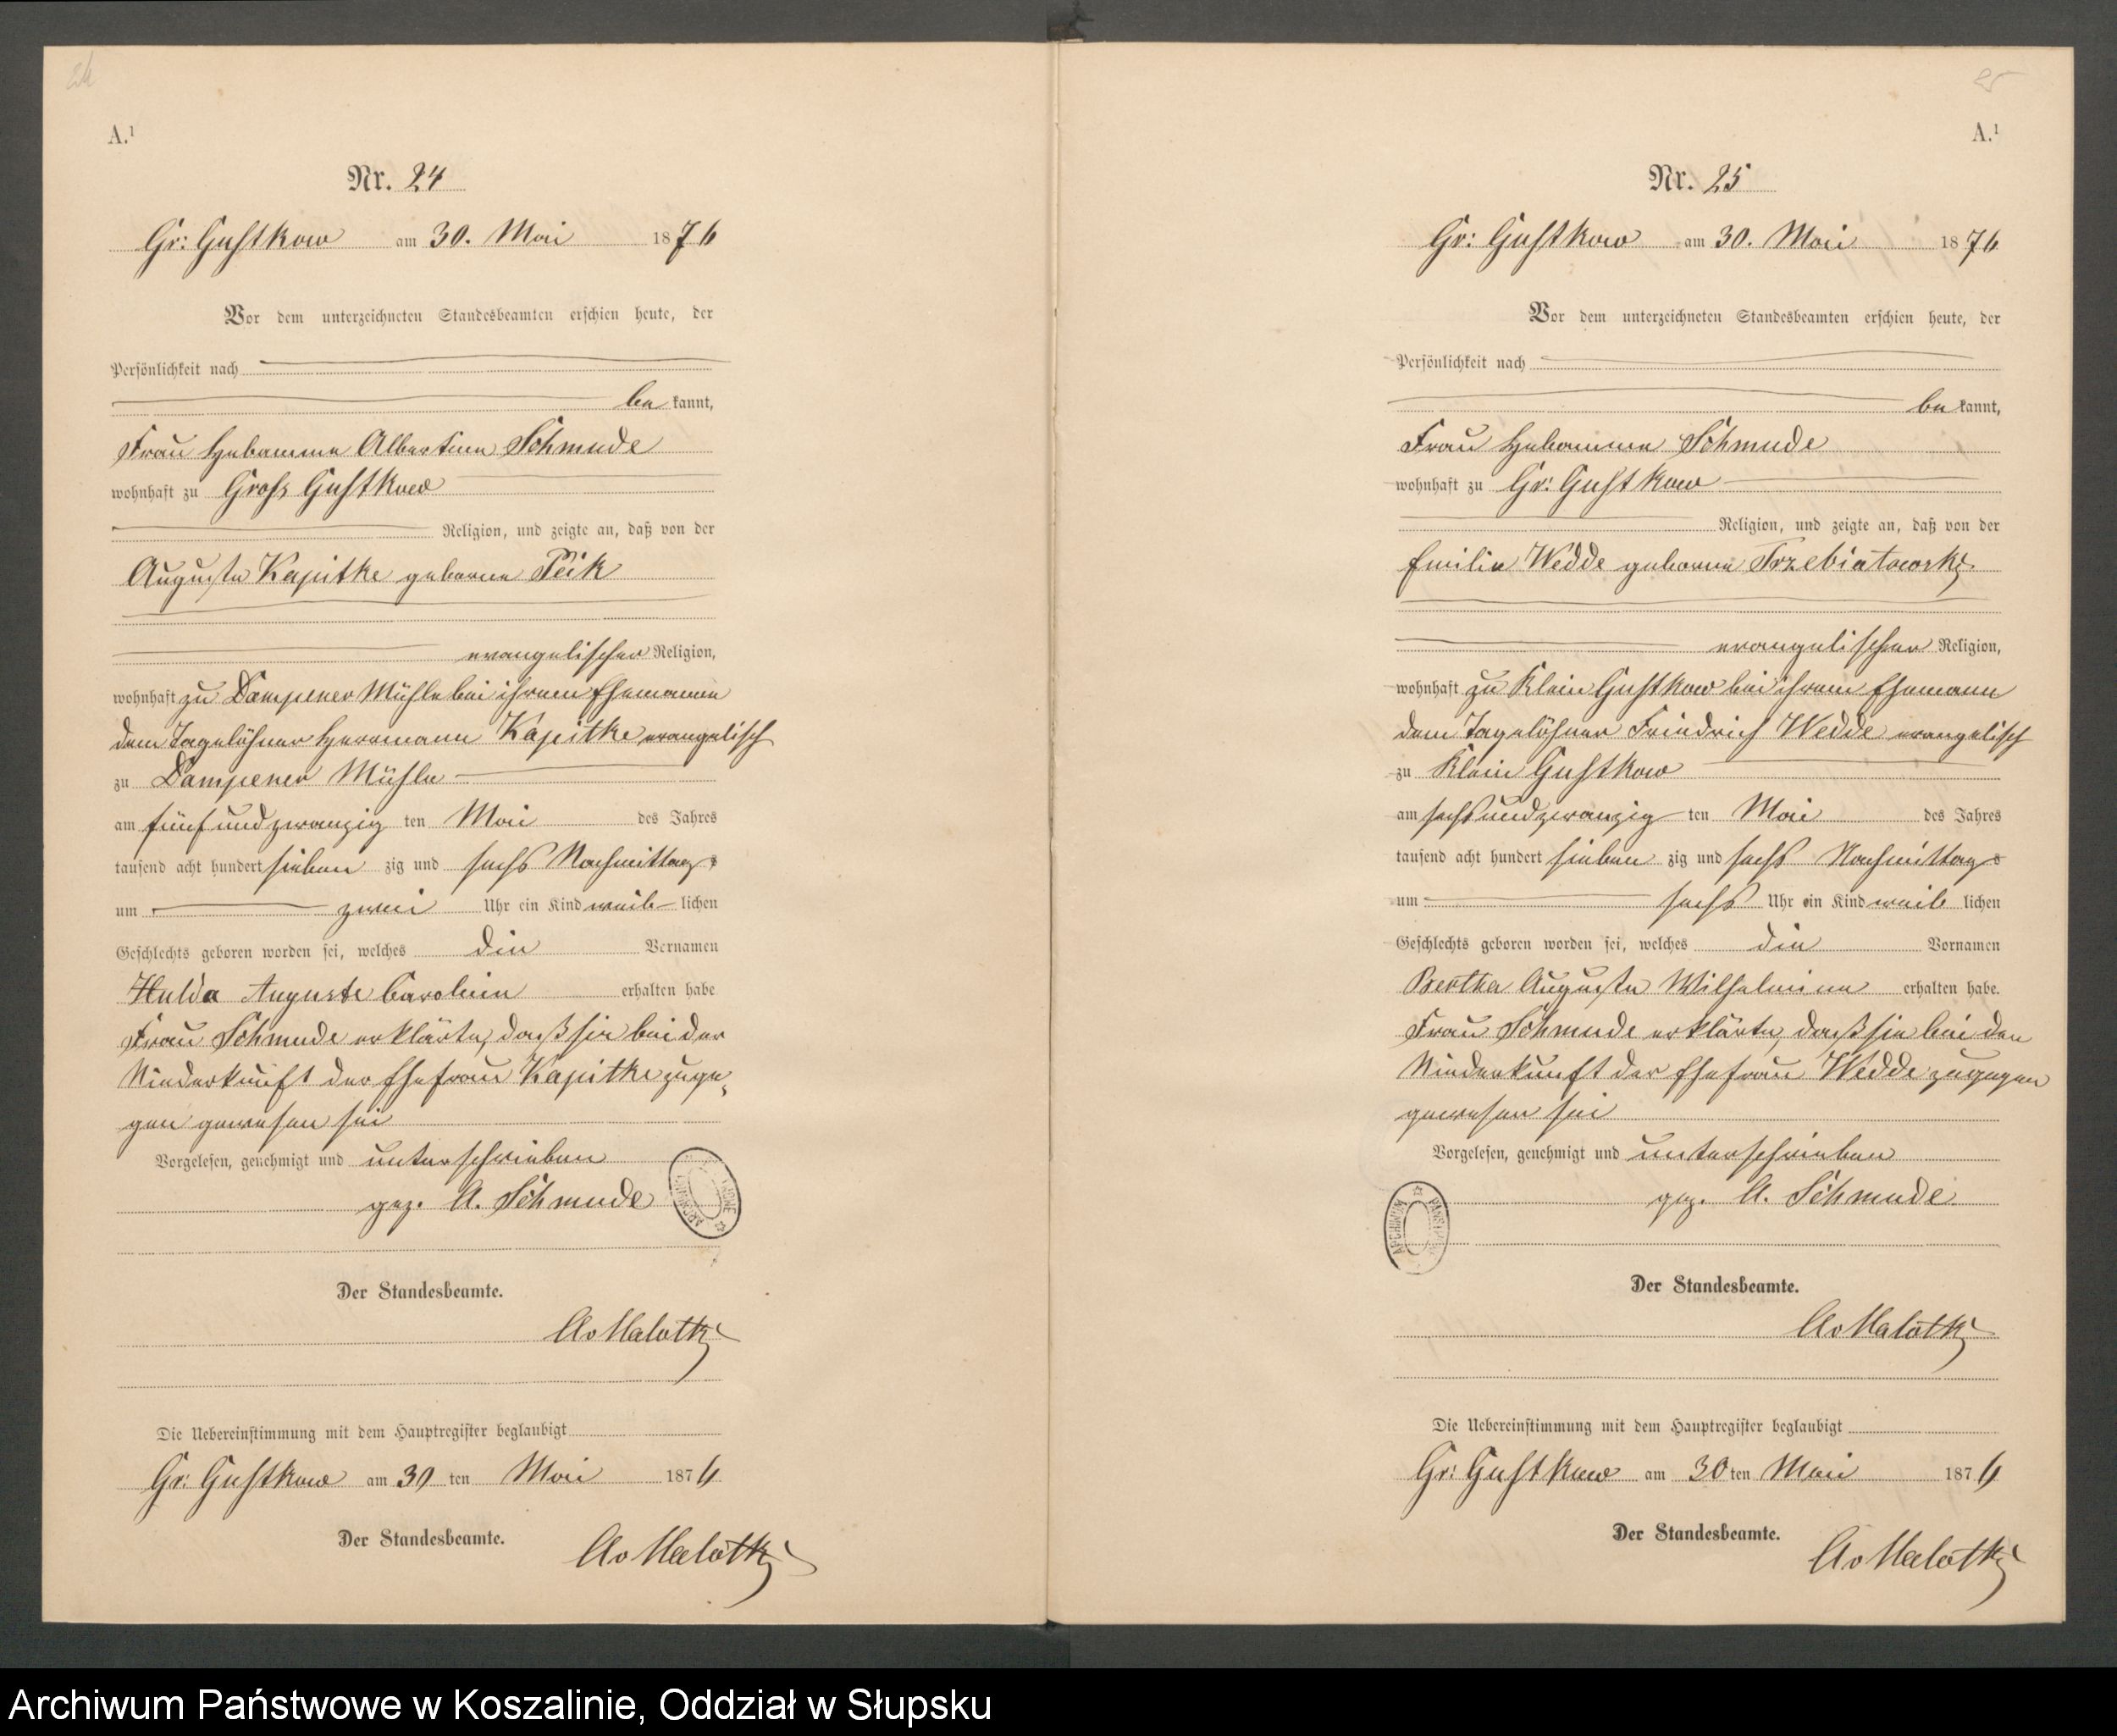 24
A.¹
Nr. 24
Gr: Gustkow am 30. Mai 1876
Vor dem unterzeichneten Standesbeamten erschien heute, der
Persönlichkeit nach
be kannt,
Frau Hebamme Albertine Schmude
wohnhaft zu Gross Gustkow
Religion, und zeigte an, daß von der
Auguste Kapitke geborne Peik
evangelischer Religion,
wohnhaft zu Dampener Mühle bei ihrem Ehemanne
dem Tagelöhner Herrmann Kapitke evangelisch
zu Dampener Mühle
am fünfundzwanzig ten Mai des Jahres
tausend acht hundert sieben zig und sechs Nachmittags
um zwei Uhr ein Kind weib lichen
Geschlechts geboren worden sei, welches die Vornamen
Hulda Auguste Caroline erhalten habe
Frau Schmude erklärte, daß sie bei der
Niederkunft der Ehefrau Kapitke zuge,
gen gewesen sei
Vorgelesen, genehmigt und unterschrieben
gez. A. Schmude
Der Standesbeamte.
AvMalottki
Die Uebereinstimmung mit dem Hauptregister beglaubigt
Gr: Gustkow am 30 ten Mai 1876
Der Standesbeamte.
AvMalottki
25
A.¹
Nr. 25
Gr: Gustkow am 30. Mai 1876
Vor dem unterzeichneten Standesbeamten erschien heute, der
Persönlichkeit nach
be kannt,
Frau Hebamme Schmude
wohnhaft zu Gr: Gustkow
Religion, und zeigte an, daß von der
Emilie Wedde geborne Trzebiatowski
evangelischer Religion,
wohnhaft zu Klein Gustkow bei ihrem Ehemann
dem Tagelöhner Friedrich Wedde evangelisch
zu Klein Gustkow
am sechsundzwanzig ten Mai des Jahres
tausend acht hundert sieben zig und sechs Nachmittags
um sechs Uhr ein Kind weib lichen
Geschlechts geboren worden sei, welches die Vornamen
Bertha Auguste Wilhelmine erhalten habe.
Frau Schmude erklärte, daß sie bei der
Niederkunft der Ehefrau Wedde zugegen
gewesen sei
Vorgelesen, genehmigt und unterschrieben
gez. A. Schmude
ARCHIWUM
Der Standesbeamte.
AvMalottki
Die Uebereinstimmung mit dem Hauptregister beglaubigt
Gr: Gustkow am 30 ten Mai 1876
Der Standesbeamte.
AvMalottki
Archiwum Państwowe w Koszalinie, Oddział w Słupsku